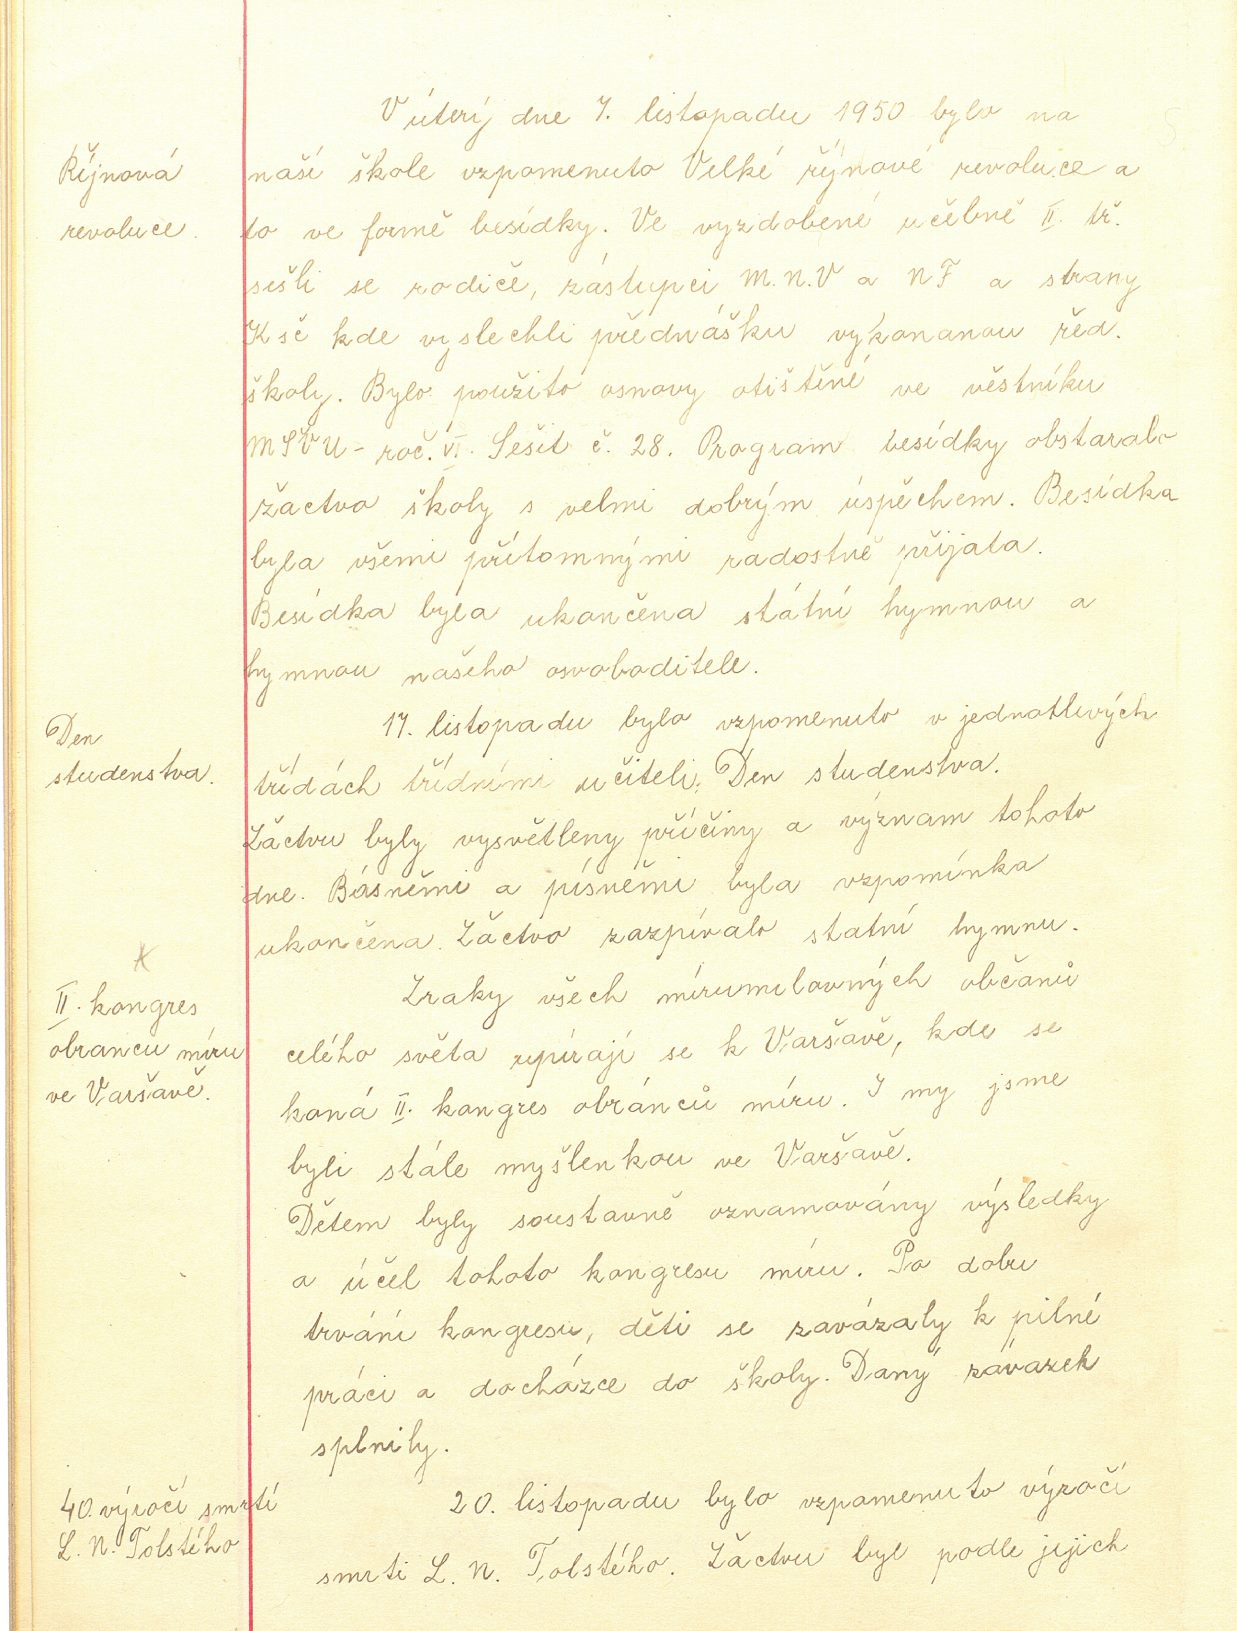 V úterý dne 7. listopadu 1950 bylo na
Říjnová
naší škole vzpomenuto Velké říjnové revoluce a
revoluce.
to ve formě besídky. Ve vyzdobené učebně II. tř.
sešli se rodiče, zástupci M.N.V a NF a strany
Ksč kde vyslechli přednášku vykonanou řed.
školy. Bylo použito osnovy otištěné ve věstníku
MŠVU - roč. VI. Sešit č. 28. Program besídky obstaralo
žactvo školy s velmi dobrým úspěchem. Besídka
byla všemi přítomnými radostně přijata.
Besídka byla ukončena státní hymnou a
hymnou našeho osvoboditele.
Den
studenstva.
17. listopadu bylo vzpomenuto v jednotlivých
třídách třídními učiteli, Den studenstva.
Žactvu byly vysvětleny příčiny a význam tohoto
dne. Básněmi a písněmi byla vzpomínka
ukončena. Žactvo zazpívalo statní hymnu.
II. kongres
obrancu míru
ve Varšavě.
Zraky všech mírumilovných občanů
celého světa upírají se k Varšavě, kde se
koná II. kongres obránců míru. I my jsme
byli stále myšlenkou ve Varšavě.
Dětem byly soustavně oznamovány výsledky
a účel tohoto kongresu míru. Po dobu
trvání kongresu, děti se zavázaly k pilné
práci a docházce do školy. Daný závazek
splnily.
40. výročí smrtí
L. N. Tolstého
20. listopadu bylo vzpomenuto výročí
smrti L. N. Tolstého. Žactvu byl podle jejich